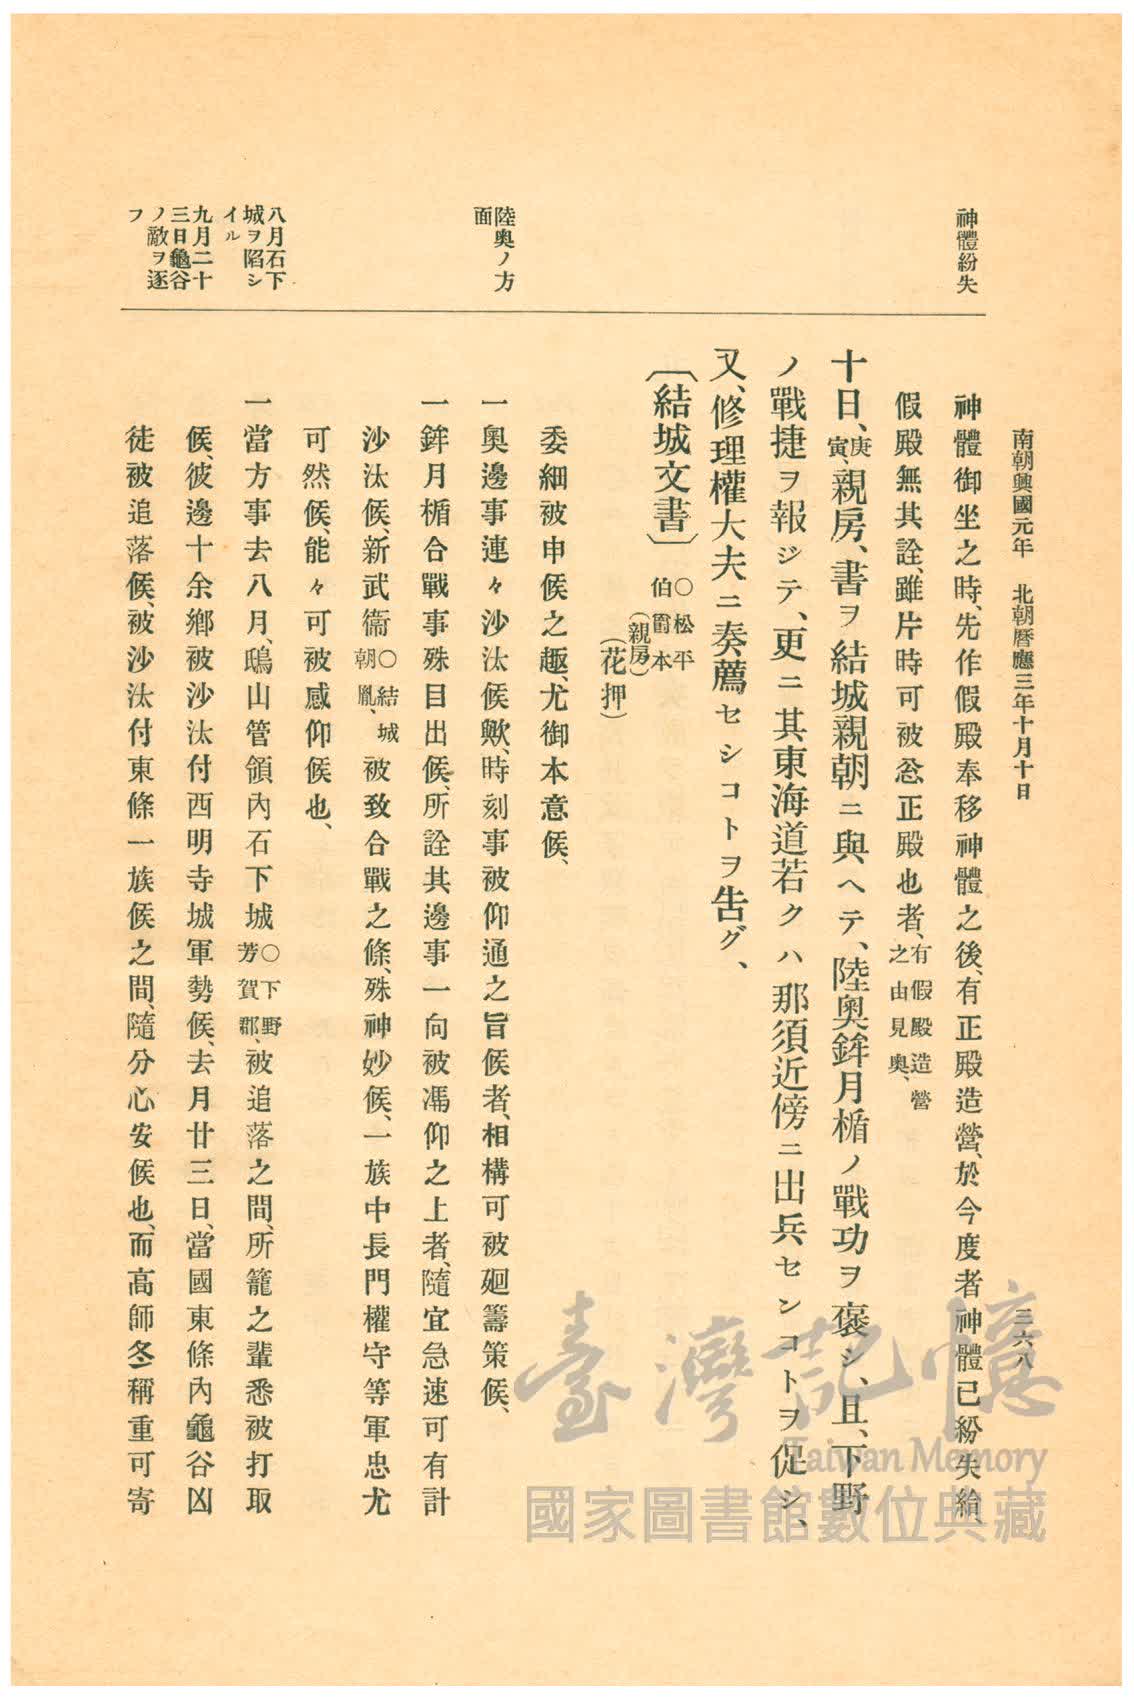 南朝興國元年　北朝曆應三年十月十日
三六八
神體紛失
神體御坐之時、先作假殿奉移神體之後、有正殿造營、於今度者神體已紛失給、
假殿無其詮、雖片時可被忩正殿也者、有假殿造營之由見奧、
十日、庚寅、親房、書ヲ結城親朝ニ與ヘテ、陸奧鉾月楯ノ戰功ヲ褒シ、且、下野
ノ戰捷ヲ報ジテ、更ニ其東海道若クハ那須近傍ニ出兵センコトヲ促シ、
又、修理權大夫ニ奏薦セシコトヲ告グ、
〔結城文書〕○松平伯爵本
（親房）
（花押）
委細被申候之趣、尤御本意候、
陸奧ノ方面
一奧邊事連々沙汰候歟、時刻事被仰通之旨候者、相構可被廻籌策候、
一鉾月楯合戰事殊目出候、所詮其邊事一向被馮仰之上者、隨宜急速可有計
沙汰候、新武衞○結城朝胤、被致合戰之條、殊神妙候、一族中長門權守等軍忠尤
可然候、能々可被感仰候也、
八月石下城ヲ陷シイル
一當方事去八月、鴟山管領內石下城○下野芳賀郡、被追落之間、所籠之輩悉被打取
九月二十三日龜谷ノ敵ヲ逐フ
候、彼邊十余鄕被沙汰付西明寺城軍勢候、去月廿三日、當國東條內龜谷凶
徒被追落候、被沙汰付東條一族候之間、隨分心安候也、而高師冬稱重可寄
臺灣記憶
Taiwan Memory
國家圖書館數位典藏